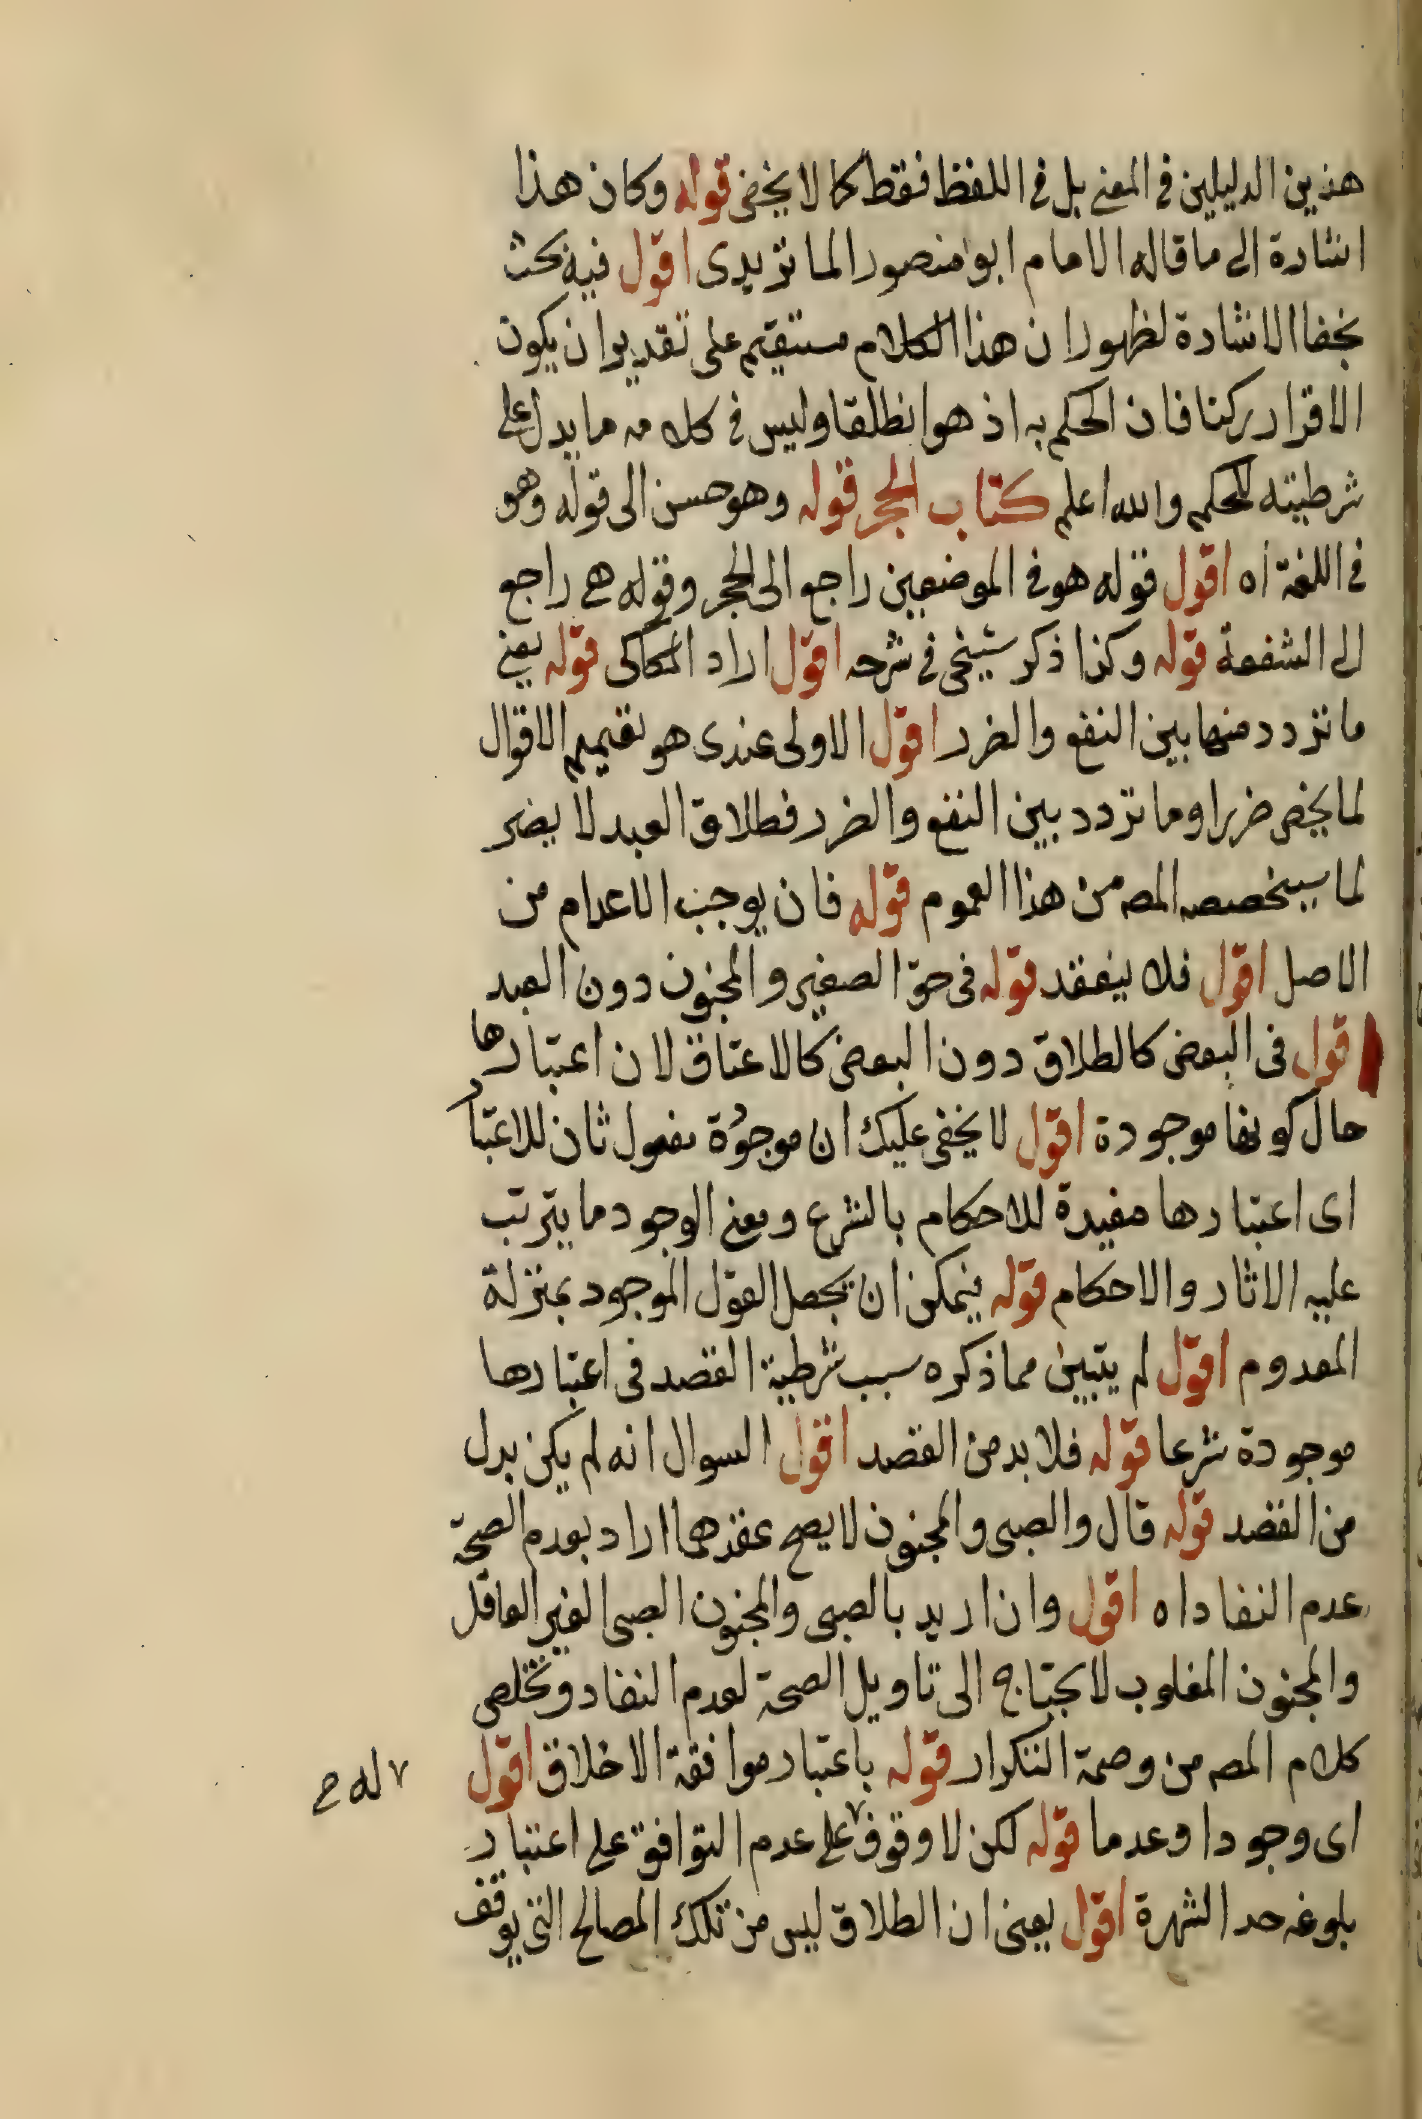 هذين الدليلين في المعنى بل في اللفظ فقط كما لا يخفى قوله وكان هذا
اشارة الى ما قاله الامام ابو منصور الماتريدى اقول فيه بحث
بخفا الاشارة لظهور ان هذا الكلام مستقيم على تقدير ان يكون
الاقرار ركنا فان الحكم به اذ هو انطلقا وليس في كلامه ما يدل على
شرطيته للحكم والله اعلم كتاب الحجر قوله وهو حسن الى قوله وهو
في اللغة اه اقول قوله هو في الموضعين راجع الى الحجر وقوله هي راجع
الى الشفعة قوله وكذا ذكر شيخى في شرحه اقول اراد الكاكى قوله يعني
ما تردد منها بين النفع والضرر اقول الاولى عندى هو تعميم الاقوال
لما يخص ضررا وما تردد بين النفع والضرر فطلاق العبد لا يضر
لما سيخصصه المصه من هذا العموم قوله فان يوجب الاعدام من
الاصل اقول فلا ينعقد قوله فى حق الصغير والمجنون دون العبد
اقول فى البعض كالطلاق دون البعض كالاعتاق لان اعتبارها
حال كونها موجودة اقول لا يخفى عليك ان موجودة مفعول ثان للاعتبار
اى اعتبارها مفيدة للاحكام بالشرع ومعنى الوجود ما يترتب
عليه الاثار والاحكام قوله فيمكن ان يجعل القول الموجود بمنزلة
المعدوم اقول لم يتبين مما ذكره سبب شرطية القصد فى اعتبارها
موجودة شرعا قوله فلا بد من القصد اقول السوال انه لم يكن بدل
من القصد قوله قال والصبى والمجنون لا يصح عقدهما اراد بعدم الصحة
عدم النفاد اه اقول وان اريد بالصبى والمجنون الصبى الغير العاقل
والمجنون المغلوب لا يحتاج الى تاويل الصحة لعدم النفاد وتخلص
كلام المصه من وصمة التكرار قوله باعتبار موافقة الاخلاق اقول
٧ له ح
اى وجودا وعدما قوله لكن لا وقوف ٧ على عدم التوافق على اعتبار
بلوغه حد الشهرة اقول يعنى ان الطلاق ليس من تلك المصالح التى يوقف